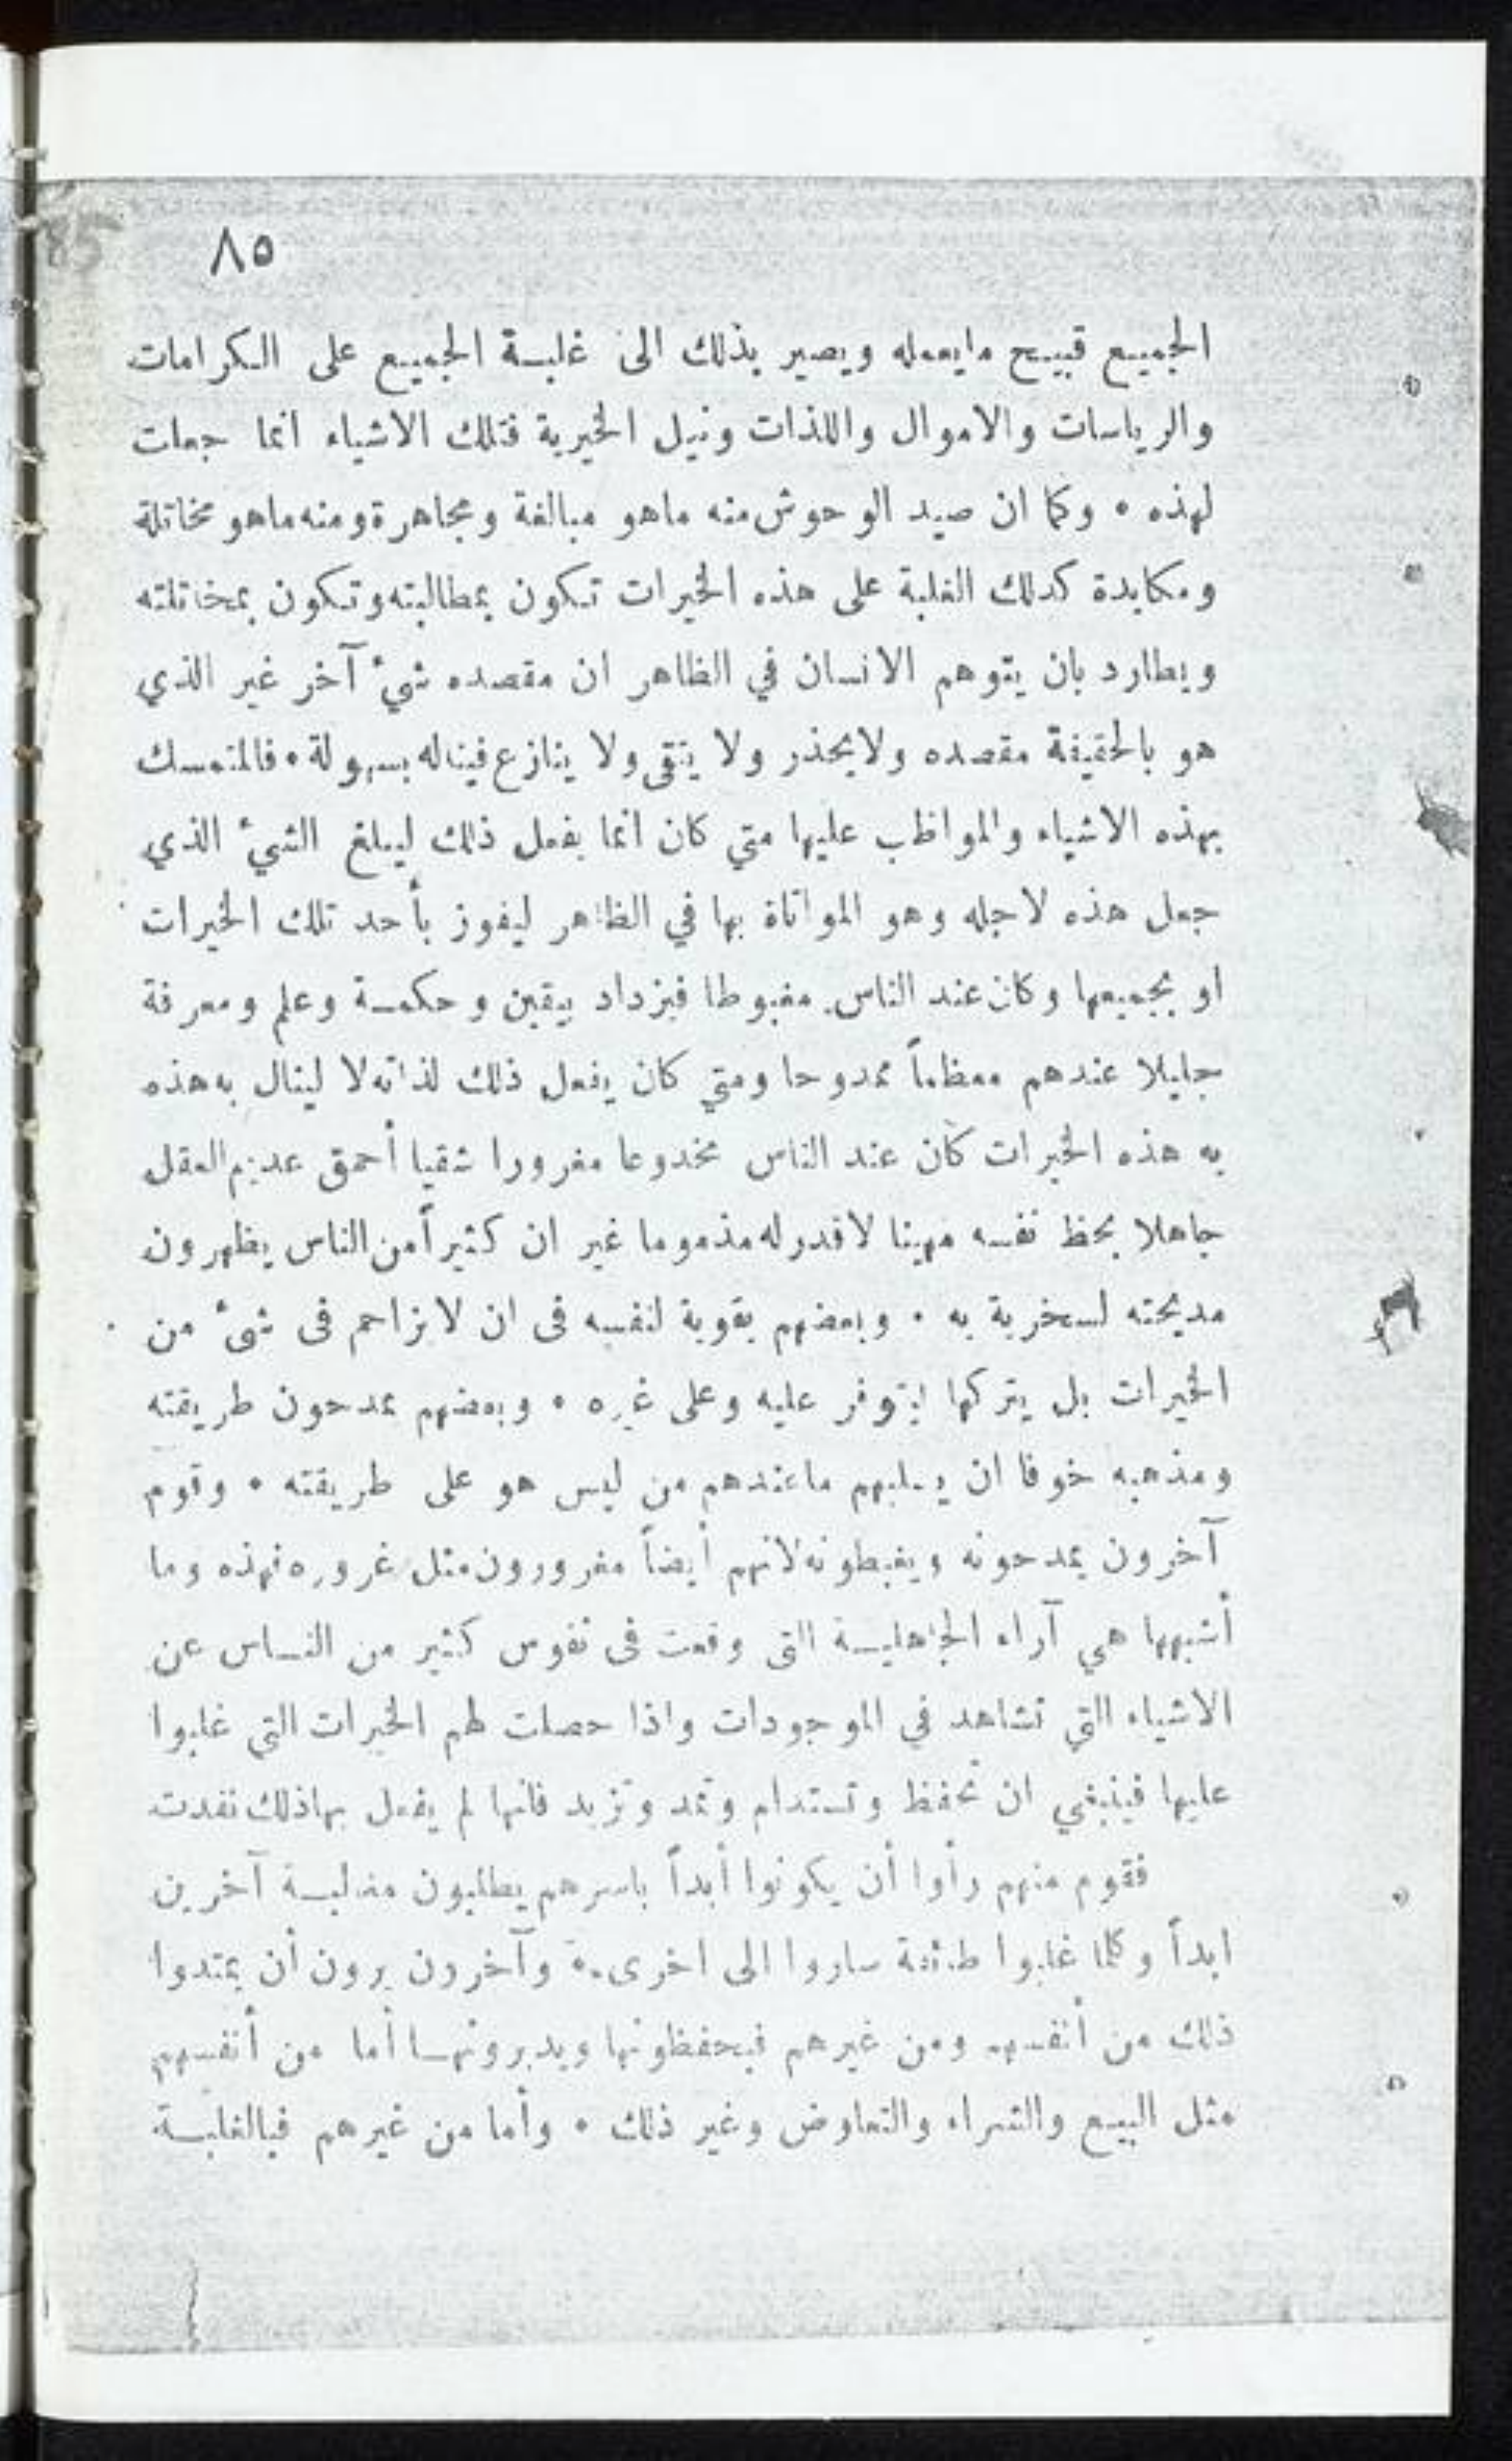 ٨٥
الجميع قبيح مايعمله ويصير بذلك الى غلبة الجميع على الكرامات
والرياسات والاموال واللذات ونيل الخيرية فتلك الاشياء انما جعلت
لهذه • وكما ان صيد الوحوش منه ماهو مبالغة ومجاهرة ومنه ماهو مخاتلة
ومكايدة كذلك الغلبة على هذه الخيرات تكون بمطالبته وتكون بمخاتلته
ويطارد بان يتوهم الانسان في الظاهر ان مقصده شيء آخر غير الذي
هو بالحقيقة مقصده ولايحذر ولا يتقى ولا ينازع فيناله بسهولة • فالمتمسك
بهذه الاشياء والمواظب عليها متي كان انما يفعل ذلك ليبلغ الشيء الذي
جعل هذه لاجله وهو المواتاة بها في الظاهر ليفوز بأحد تلك الخيرات
او بجميعها وكان عند الناس مغبوطا فيزداد بيقين وحكمة وعلم ومعرفة
جليلا عندهم معظماً ممدوحا ومتي كان يفعل ذلك لذاته لا لينال به هذه
به هذه الخيرات كان عند الناس مخدوعا مغرورا شقيا أحمق عديم العقل
جاهلا بحظ نفسه مهينا لاقدر له مذموما غير ان كثيراً من الناس يظهرون
مديحته لسخرية به • وبعضهم بقوية لنفسه فى ان لا يزاحم فى شئ من
الخيرات بل يتركها ليتوفر عليه وعلى غيره • وبعضهم يمدحون طريقته
ومذهبه خوفا ان يسلبهم ماعندهم من ليس هو على طريقته • وقوم
آخرون يمدحونه ويغبطونه لانهم أيضاً مغرورون مثل غروره فهذه وما
أشبهها هي آراء الجاهلية التى وقعت فى نفوس كثير من الناس عن
الاشياء التي تشاهد في الموجودات واذا حصلت لهم الخيرات التي غلبوا
عليها فينبغي ان تحفظ وتستدام وتمد وتزيد فانها لم يفعل بها ذلك نفدت
فقوم منهم رأوا أن يكونوا أبداً باسرهم يطلبون مغالبة آخرين
ابداً وكلما غلبوا طائفة ساروا الى اخرى • وآخرون يرون أن يمتدوا
ذلك من أنفسهم ومن غيرهم فيحفظونها ويدبرونها أما من أنفسهم
مثل البيع والشراء والتعاوض وغير ذلك • وأما من غيرهم فبالغلبة